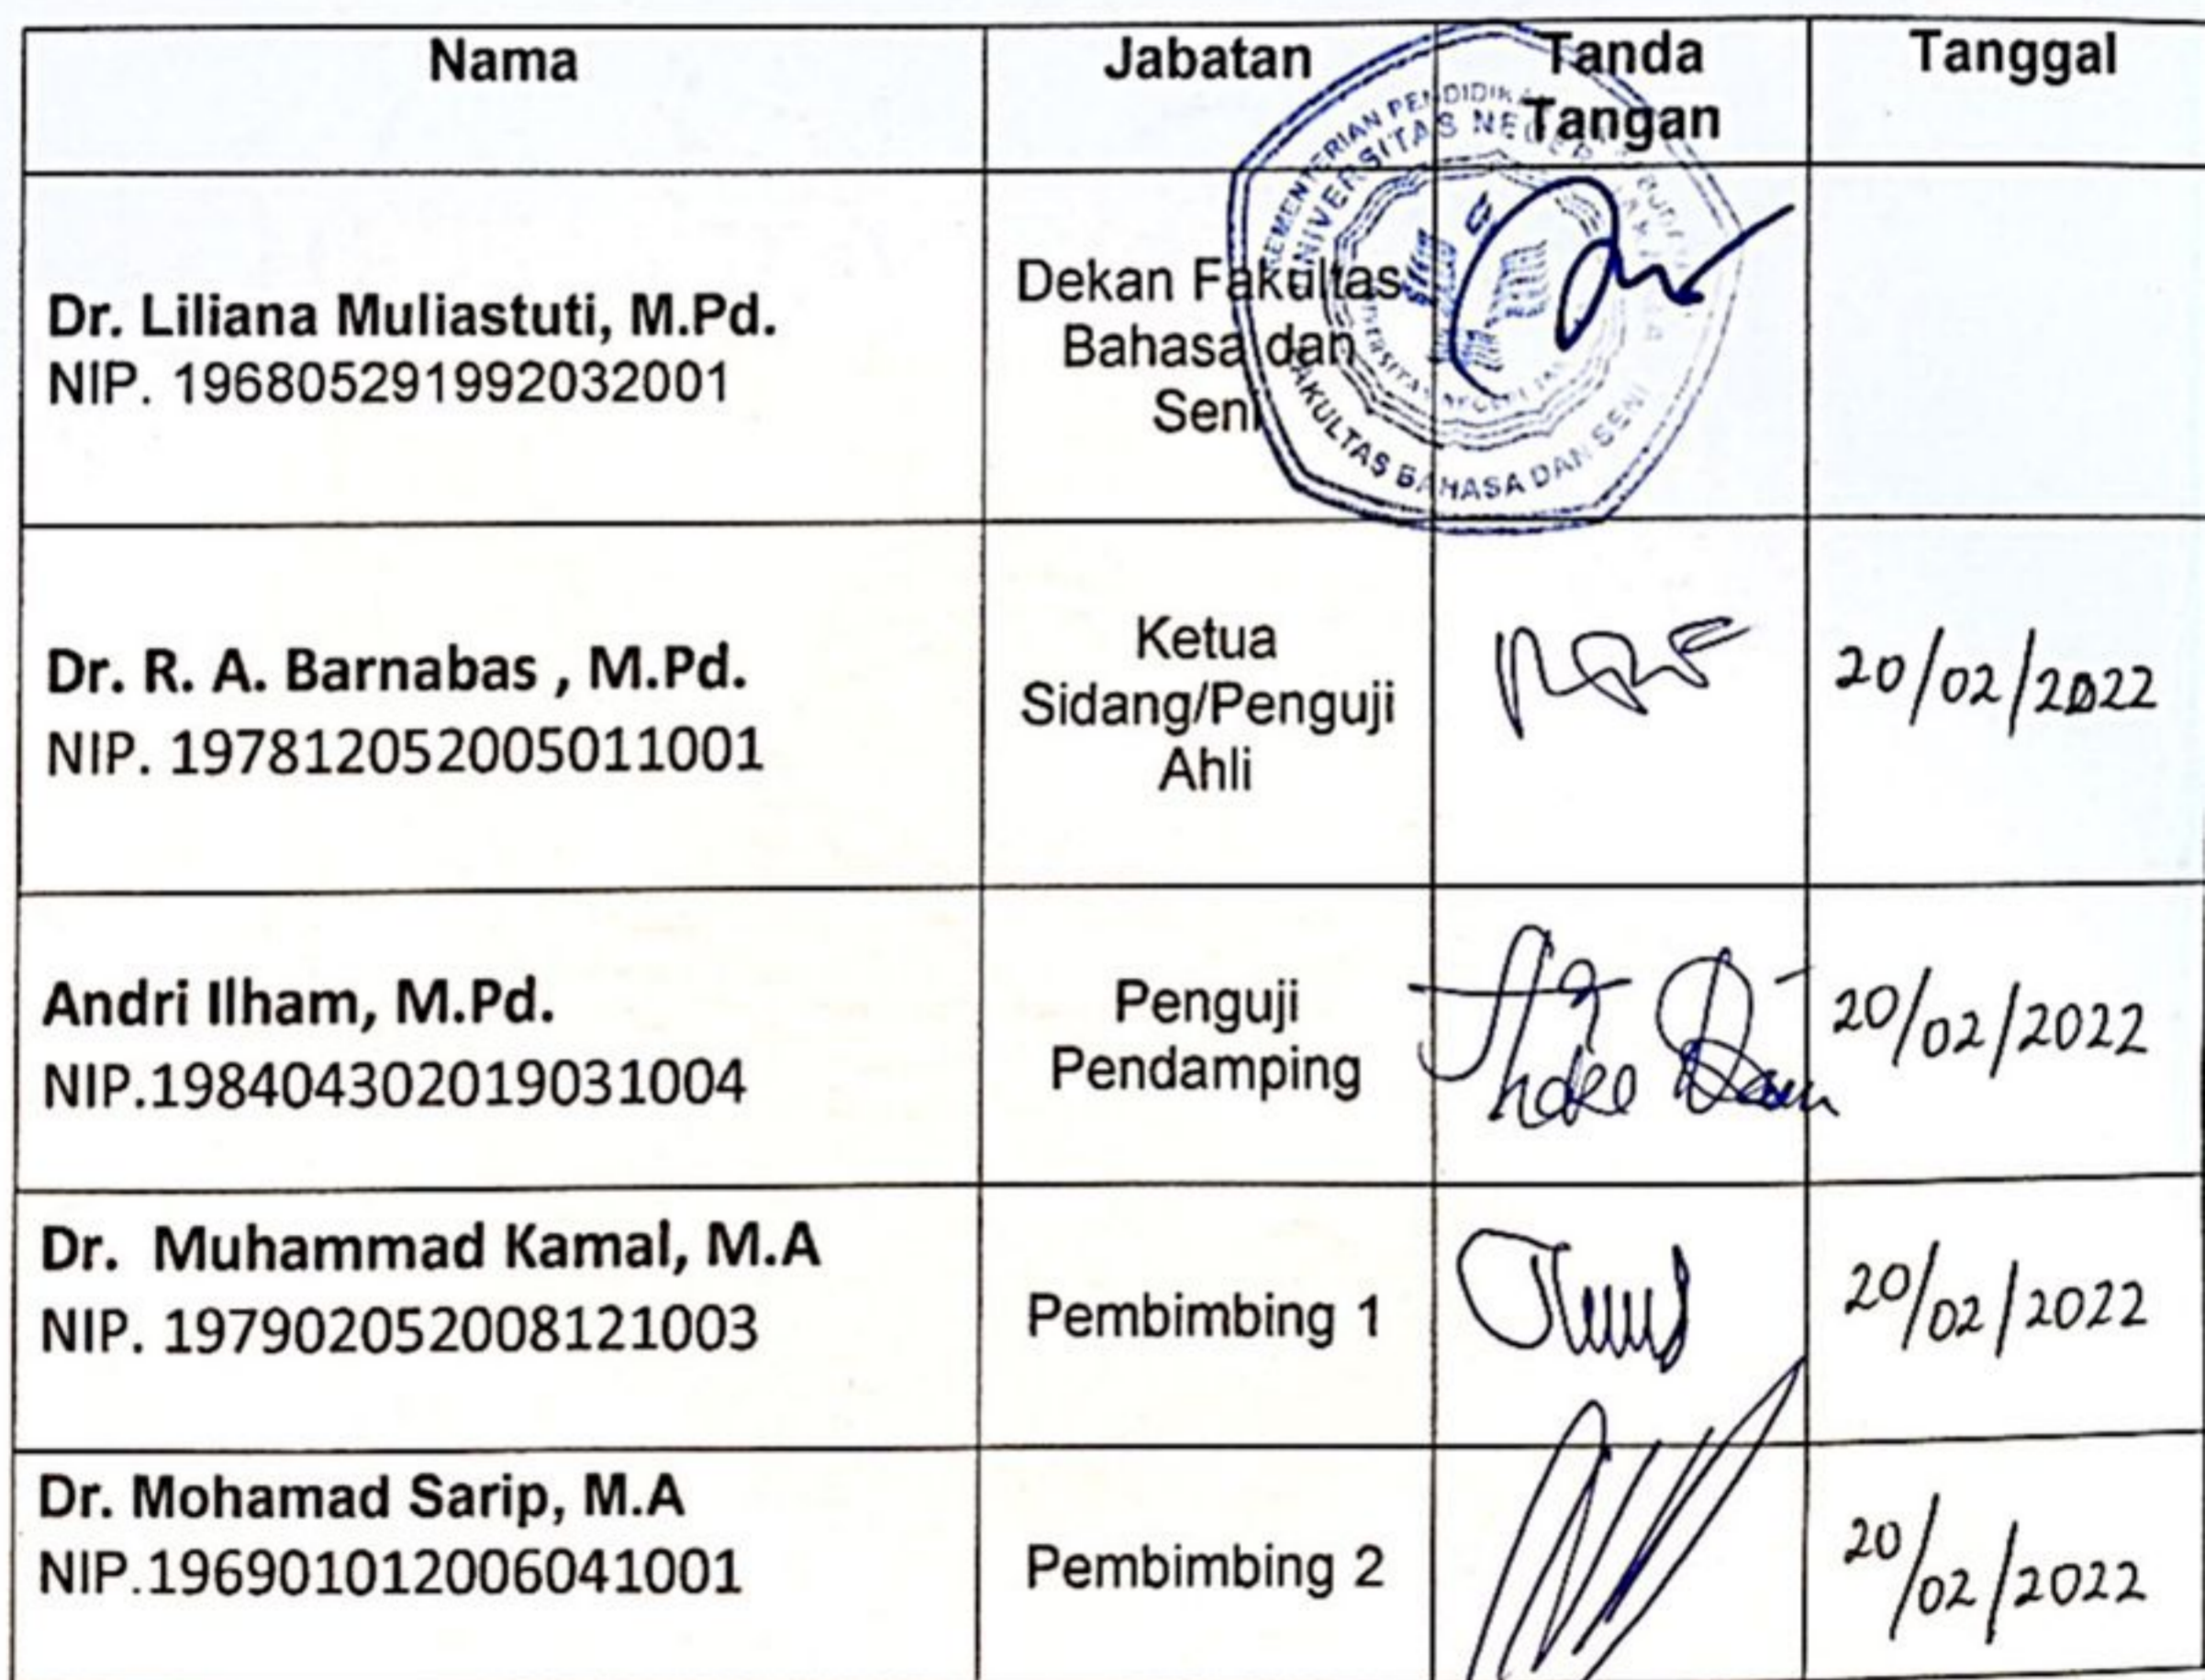 Nama
Jabatan
Tanda
Tangan
Tanggal
Dr. Liliana Muliastuti, M.Pd.
NIP. 196805291992032001
Dekan Fakultas
Bahasa dan
Seni
KEMENTERIAN PENDIDIKAN
UNIVERSITAS NEGERI
FAKULTAS BAHASA DAN SENI
Dr. R. A. Barnabas , M.Pd.
NIP. 197812052005011001
Ketua
Sidang/Penguji
Ahli
20/02/2022
Andri Ilham, M.Pd.
NIP.198404302019031004
Penguji
Pendamping
20/02/2022
Dr. Muhammad Kamal, M.A
NIP. 197902052008121003
Pembimbing 1
20/02/2022
Dr. Mohamad Sarip, M.A
NIP.196901012006041001
Pembimbing 2
20/02/2022